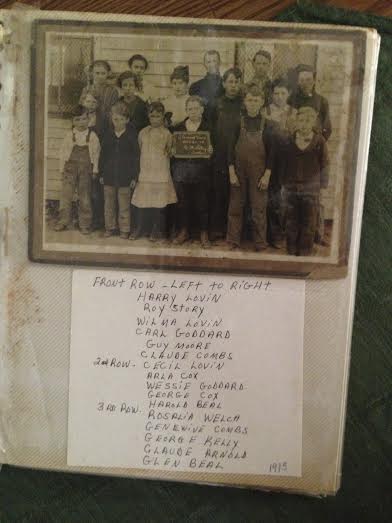 FRONT ROW - LEFT TO RIGHT
HARRY LOVIN
ROY STORY
WILMA LOVIN
CARL GODDARD
GUY MOORE
CLAUDE COMBS
2nd ROW - CECIL LOVIN
ARLA COX
WESSIE GODDARD
GEORGE COX
HAROLD BEAL
3RD ROW - ROSALIA WELCH
GENEVIVE COMBS
GEORGE KELLY
CLAUDE ARNOLD
GLEN BEAL